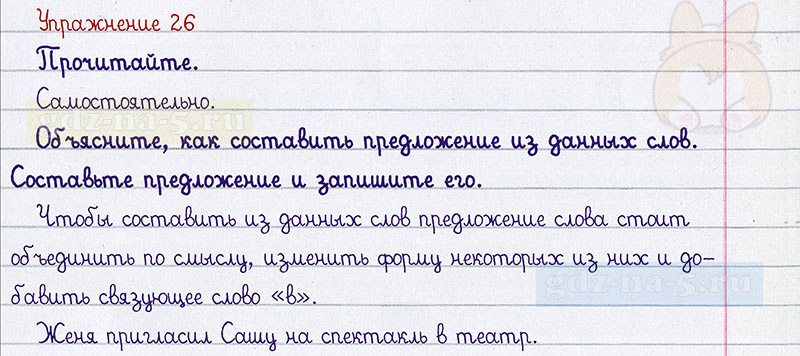 Упражнение 26
Прочитайте.
Самостоятельно.
gdz-na-5.ru
Объясните, как составить предложение из данных слов.
Составьте предложение и запишите его.
Чтобы составить из данных слов предложение слова стоит
объединить по смыслу, изменить форму некоторых из них и до-
бавить связующее слово «в».
gdz-na-5.ru
Женя пригласил Сашу на спектакль в театр.